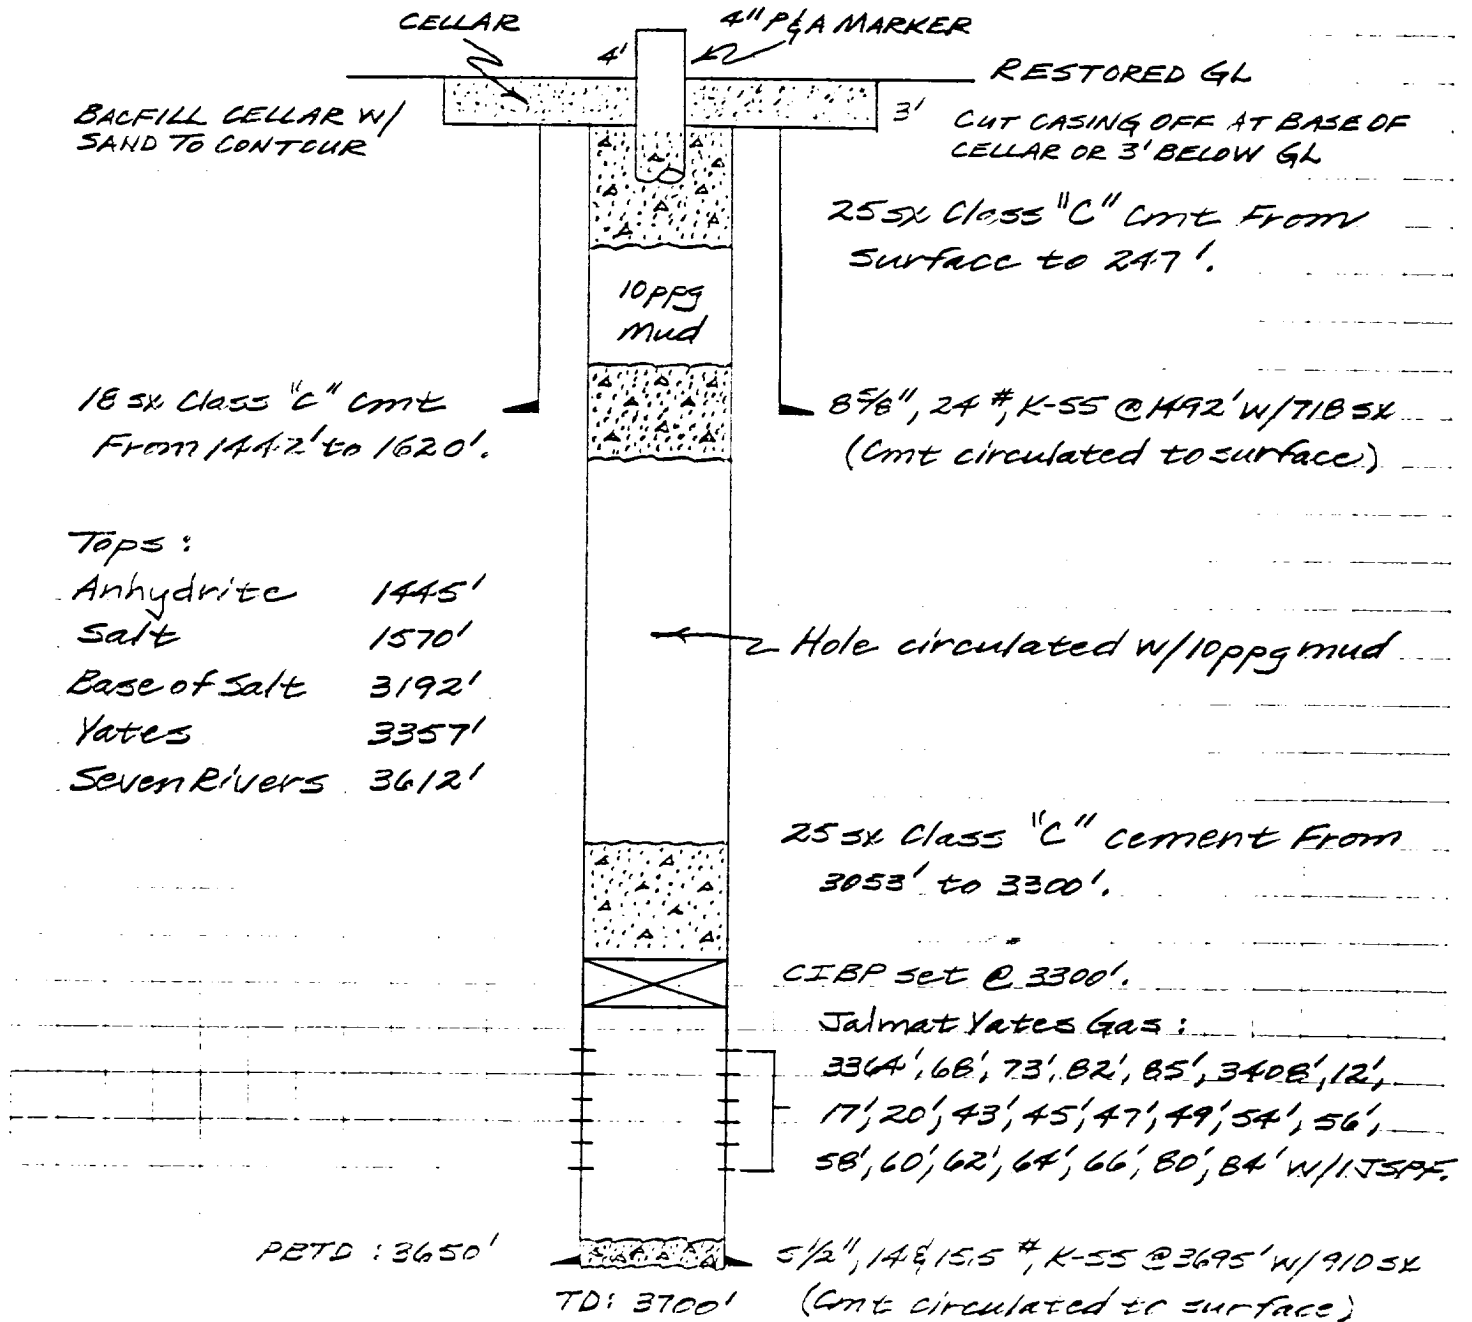 CELLAR
4" P&A MARKER
4'
RESTORED GL
BACFILL CELLAR W/
SAND TO CONTOUR
3'
CUT CASING OFF AT BASE OF
CELLAR OR 3' BELOW GL
25 sx Class "C" Cmt From
Surface to 247'.
10 ppg
Mud
18 sx Class "C" Cmt
From 1442' to 1620'.
8 5/8", 24 #, K-55 @ 1492' w/ 718 sx
(Cmt circulated to surface)
Tops:
Anhydrite 1445'
Salt 1570'
Base of Salt 3192'
Yates 3357'
Seven Rivers 3612'
Hole circulated w/ 10 ppg mud
25 sx Class "C" cement From
3053' to 3300'.
CIBP set @ 3300'.
Jalmat Yates Gas:
3364', 68', 73', 82', 85', 3408', 12',
17', 20', 43', 45', 47', 49', 54', 56',
58', 60', 62', 64', 66', 80', 84' w/ 1 JSPF.
PBTD: 3650'
5 1/2", 14 & 15.5 #, K-55 @ 3695' w/ 910 sx
(Cmt circulated to surface)
TD: 3700'